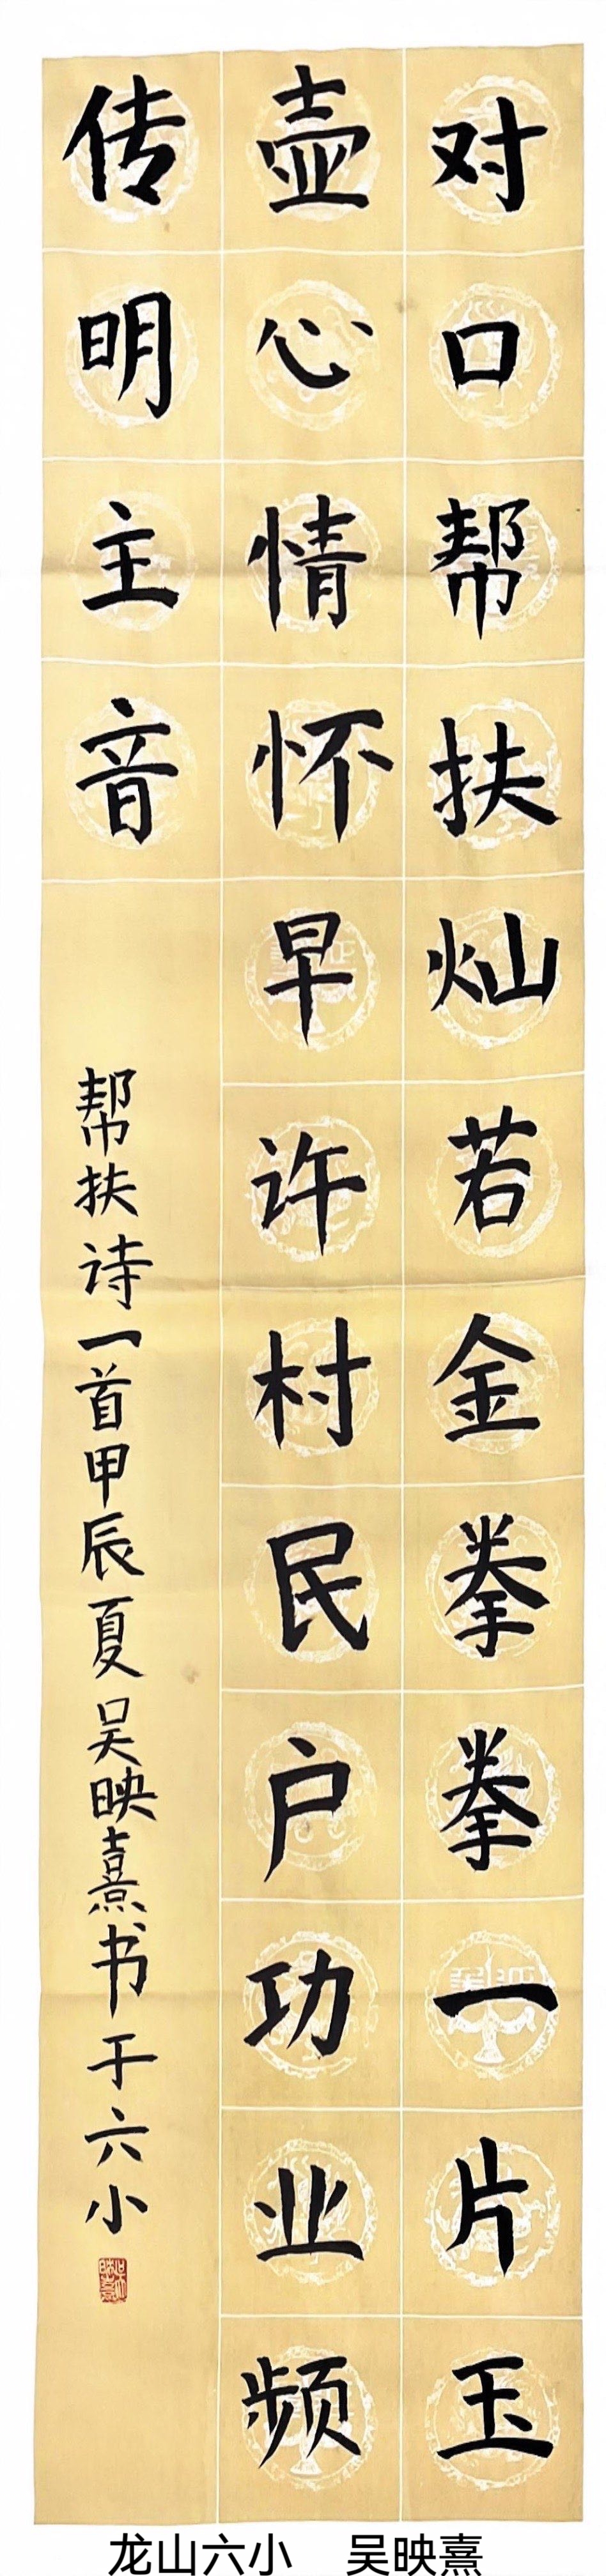 对口帮扶灿若金拳拳一片玉
壶心情怀早许村民户功业频
传明主音
帮扶诗一首甲辰夏吴映熹书于六小
吴映熹
龙山六小 吴映熹